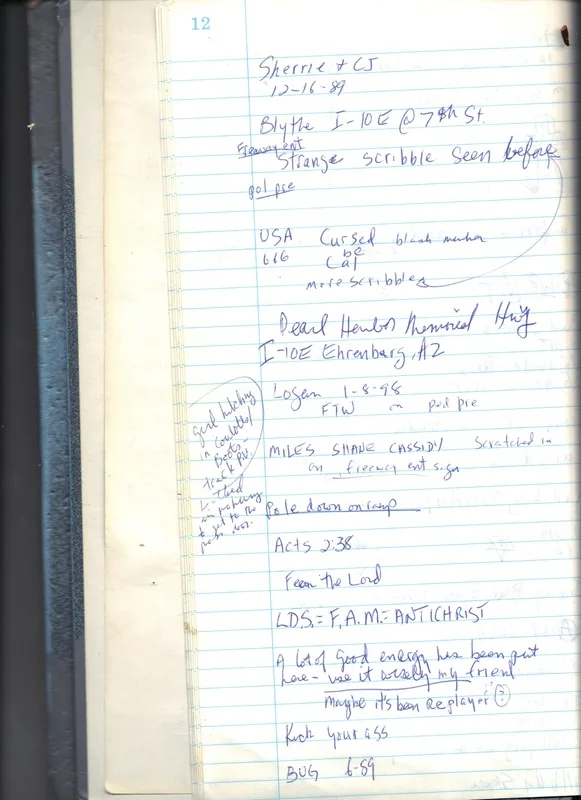 12
Sherrie + CJ
12-16-89
Blythe I-10E @ 7th St.
Freeway ent
Strange scribble seen before
pol pre
USA Cursed black marker
666 be
Cal
more scribbles
Pearl Harbor Memorial Hwy
I-10E Ehrenburg, AZ
Logan 1-8-98
FTW on pod pre
MILES SHANE CASSIDY scratched in
on freeway ent sign
Pole down onramp
Acts 2:38
Fear the Lord
L.D.S. = F.A.M. = ANTICHRIST
A lot of good energy has been put
here - use it wisely my friend
Maybe it's been replayed ?
Kick your ass
BUG 6-89
girl hitching
in
Boots -
to get to the